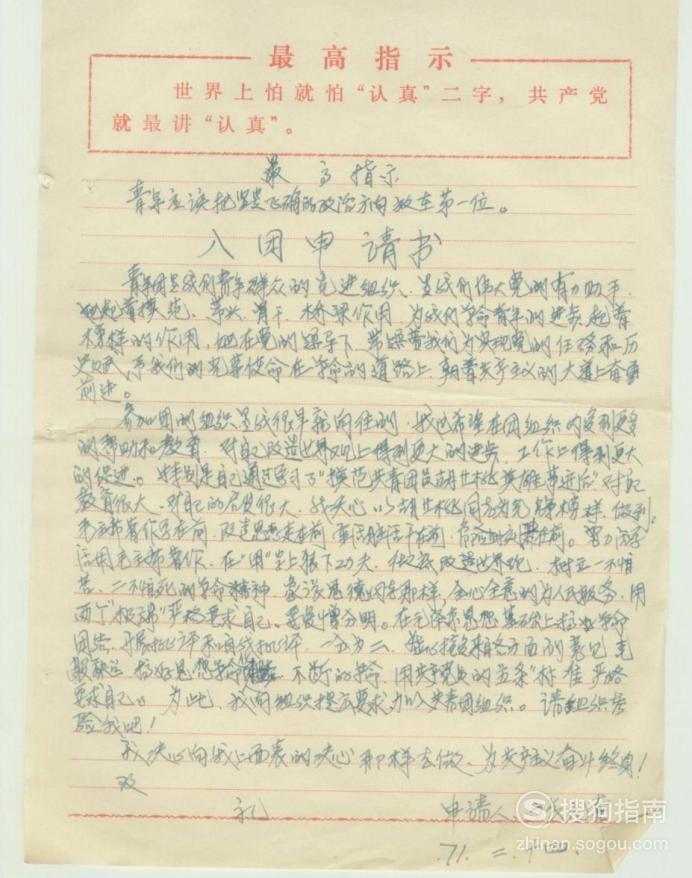 最高指示
世界上怕就怕“认真”二字，共产党
就最讲“认真”。
最高指示
青年应该把坚定正确的政治方向放在第一位。
入团申请书
青年团是我们青年群众的先进组织，是我们伟大党的有力助手，
她起着模范、带头、骨干、桥梁作用，为我们革命青年的进步起着
榜样的作用，她在党的领导下，带领着我们为实现党的任务和历
我们的光荣使命在革命的道路上，朝着共产主义的大道上奋勇
前进。
参加团的组织是我很早就向往的，我也希望在团组织内受到更多
的帮助和教育，对自己改造世界观上得到更大的进步，工作上得到更大
的促进。特别是自己通过学习了“模范共青团员胡业桃英雄事迹后”对自己
教育很大，对自己的启发很大，我决心以胡业桃同志为光辉榜样，做到
毛主席著作学在前，改造思想走在前，
活用毛主席著作，在“用”字上狠下功夫，改造世界观，树立一不怕
苦、二不怕死的革命精神，象张思德同志那样，全心全意的为人民服务，用
两个“极端”严格要求自己。爱憎分明。在毛泽东思想基础上搞好革命
团结，开展批评和自我批评，一分为二，虚心接受各方面的意见，克
服缺点，搞好思想革命化，不断的革命，用共产党员的五条标准严格
要求自己。为此，我向组织提出要求加入共青团组织。请组织考
验我吧！
我决心向我上面表的决心那样去做，为共产主义奋斗终身！
致
礼
申请人
71. 二. 十四.
搜狗指南
zhinan.sogou.com